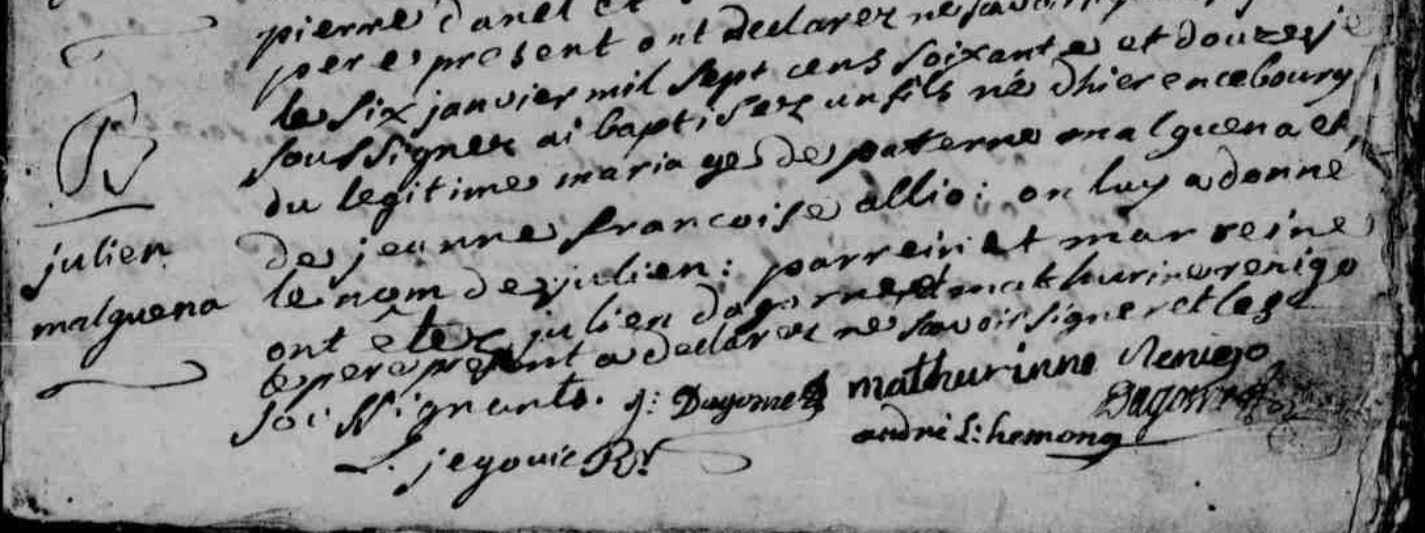 pierre danel et
pere present ont declarez ne savoir
B
le six janvier mil sept cens soixante et douze je
soussignez ai baptisez un fils né dhier en ce bourg
du legitime mariage de paterne malguena et
julien
malguena
de jeanne francoise allio : on luy a donné
le nom de julien : parrein et marreine
ont êtez julien dagorne et mathurine renigo
le pere present a declarez ne savoir signer et les
soissignants. j: Dagorne mathurinne Renigo
andré L: hemong Dagorne
L. jegouic Rr